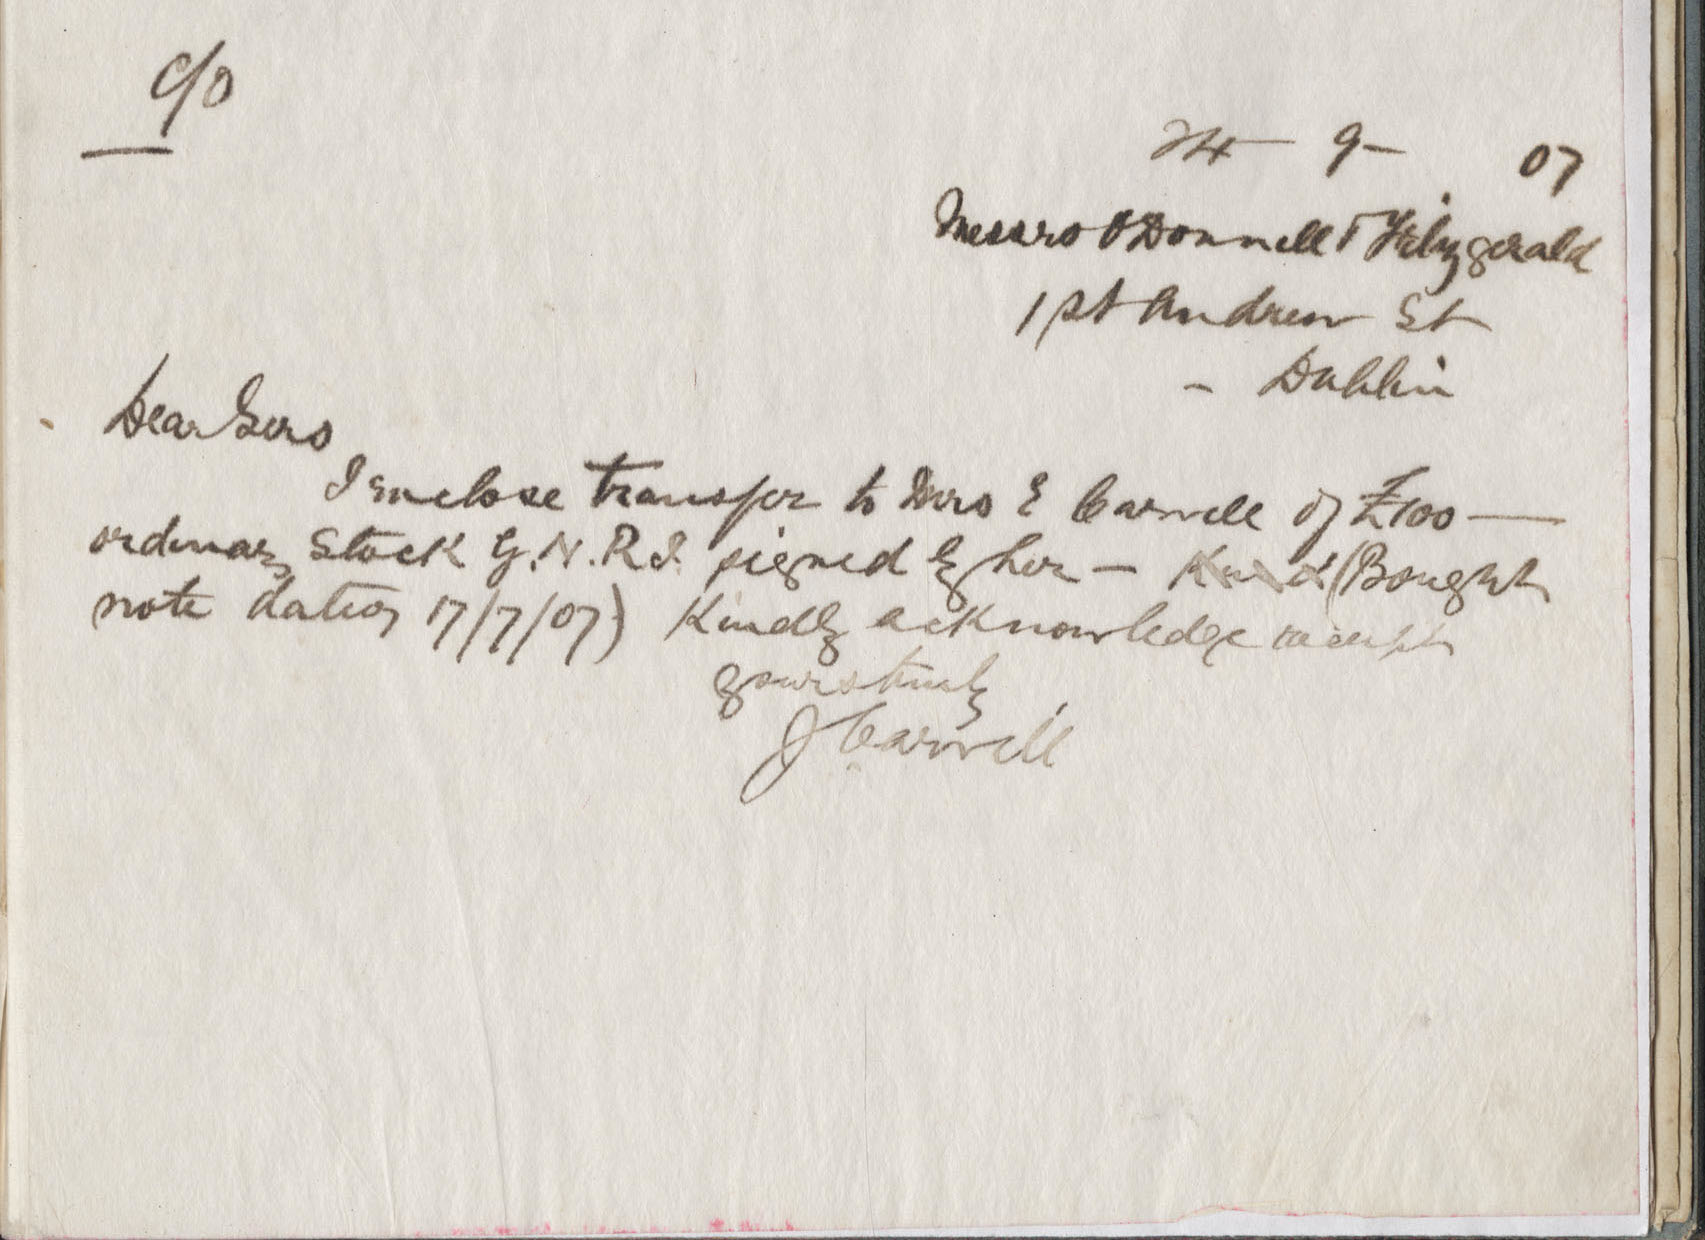 c/o
24 - 9 - 07
Messrs O'Donnell & Fitzgerald
1 St Andrew St
- Dublin
Dear Sirs
I enclose transfer to Mrs E Carvill of £100 —
ordinary Stock G.N.R.I. signed by her - Kind (Bought
note dated 17/7/07) Kindly acknowledge receipt
yours truly
J Carvill